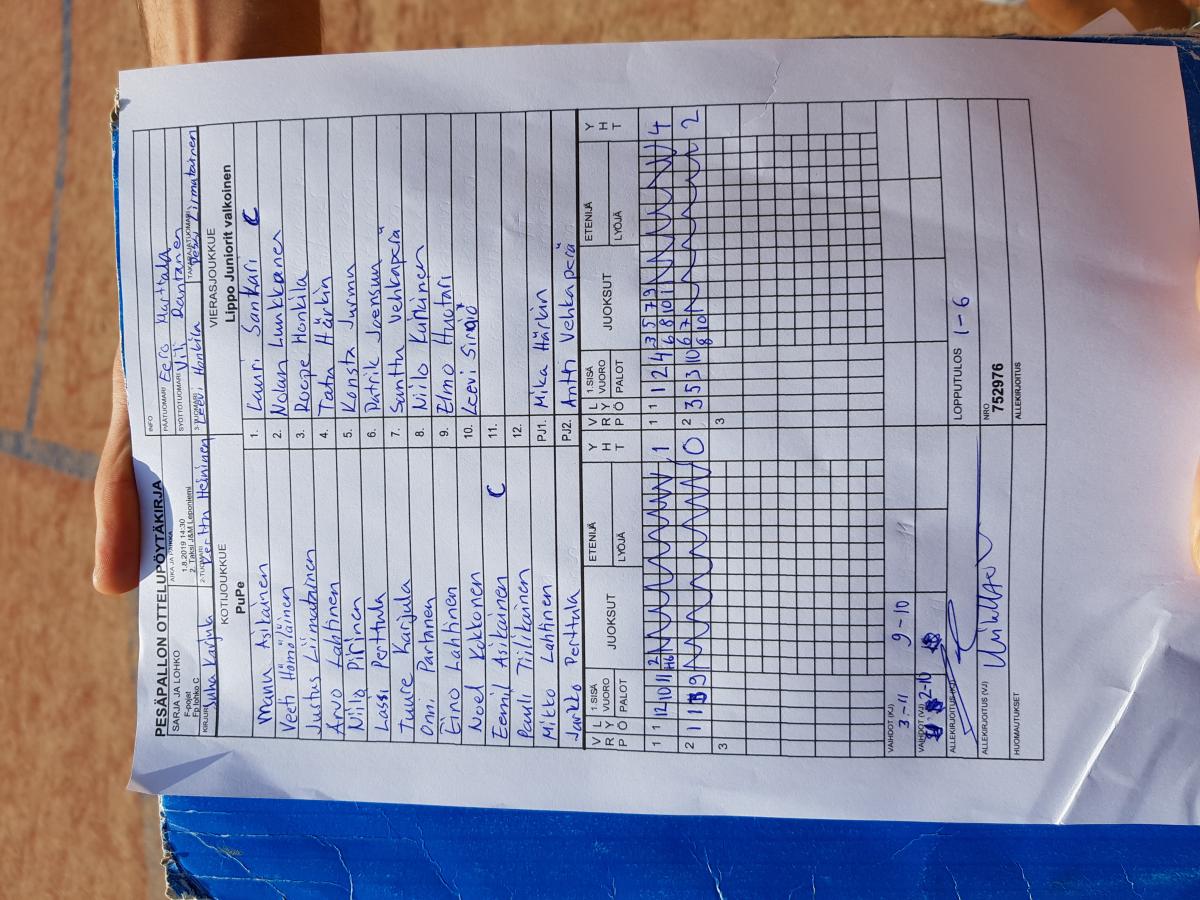 PESÄPALLON OTTELUPÖYTÄKIRJA
SARJA JA LOHKO
F-pojat
Fp lohko C
AIKA JA PAIKKA
1.8.2019 14:30
2. Taksi J&M Leponiemi
INFO
PÄÄTUOMARI Eero Marttala
SYÖTTÖTUOMARI Vili Rantanen
KIRJURI Juha Karjula
2-TUOMARI Kerttu Heininen
3-TUOMARI Leevi Honkila
TAKARAJATUOMARI Vesa Liimatainen
KOTIJOUKKUE
PuPe
VIERASJOUKKUE
Lippo Juniorit valkoinen
Manu Asikainen 1. Lauri Sankari C
Veeti Hömöläinen 2. Nolan Luukkonen
Justus Liimatainen 3. Roope Honkila
Arvo Lahtinen 4. Tatu Härkin
Niila Piirinen 5. Konsta Jurmu
Lassi Perttula 6. Patrik Joensuu
Tuure Karjula 7. Santtu Vehkaperä
Onni Partanen 8. Niilo Kinnunen
Eino Lahtinen 9. Elmo Huotari
Noel Kokkonen 10. Leevi Sirviö
Eemil Asikainen C 11.
Pauli Tiilikainen 12.
Mikko Lahtinen PJ1. Mika Härkin
Jarkko Perttula PJ2. Antti Vehkaperä
V R P L Y Ö 1.SISÄ VUORO PALOT JUOKSUT ETENIJÄ LYÖJÄ Y H T V R P L Y Ö 1.SISÄ VUORO PALOT JUOKSUT ETENIJÄ LYÖJÄ Y H T
1 1 12 10 11 2 H6 1 1 1 1 2 4 3 5 7 9 6 8 10 1 4
2 1 1 9 0 2 3 5 3 10 6 7 8 10 2
3 3
VAIHDOT (KJ) 3-11 9-10
VAIHDOT (VJ) 2-10
ALLEKIRJOITUS (KJ)
LOPPUTULOS 1-6
ALLEKIRJOITUS (VJ)
NRO
752976
HUOMAUTUKSET
ALLEKIRJOITUS